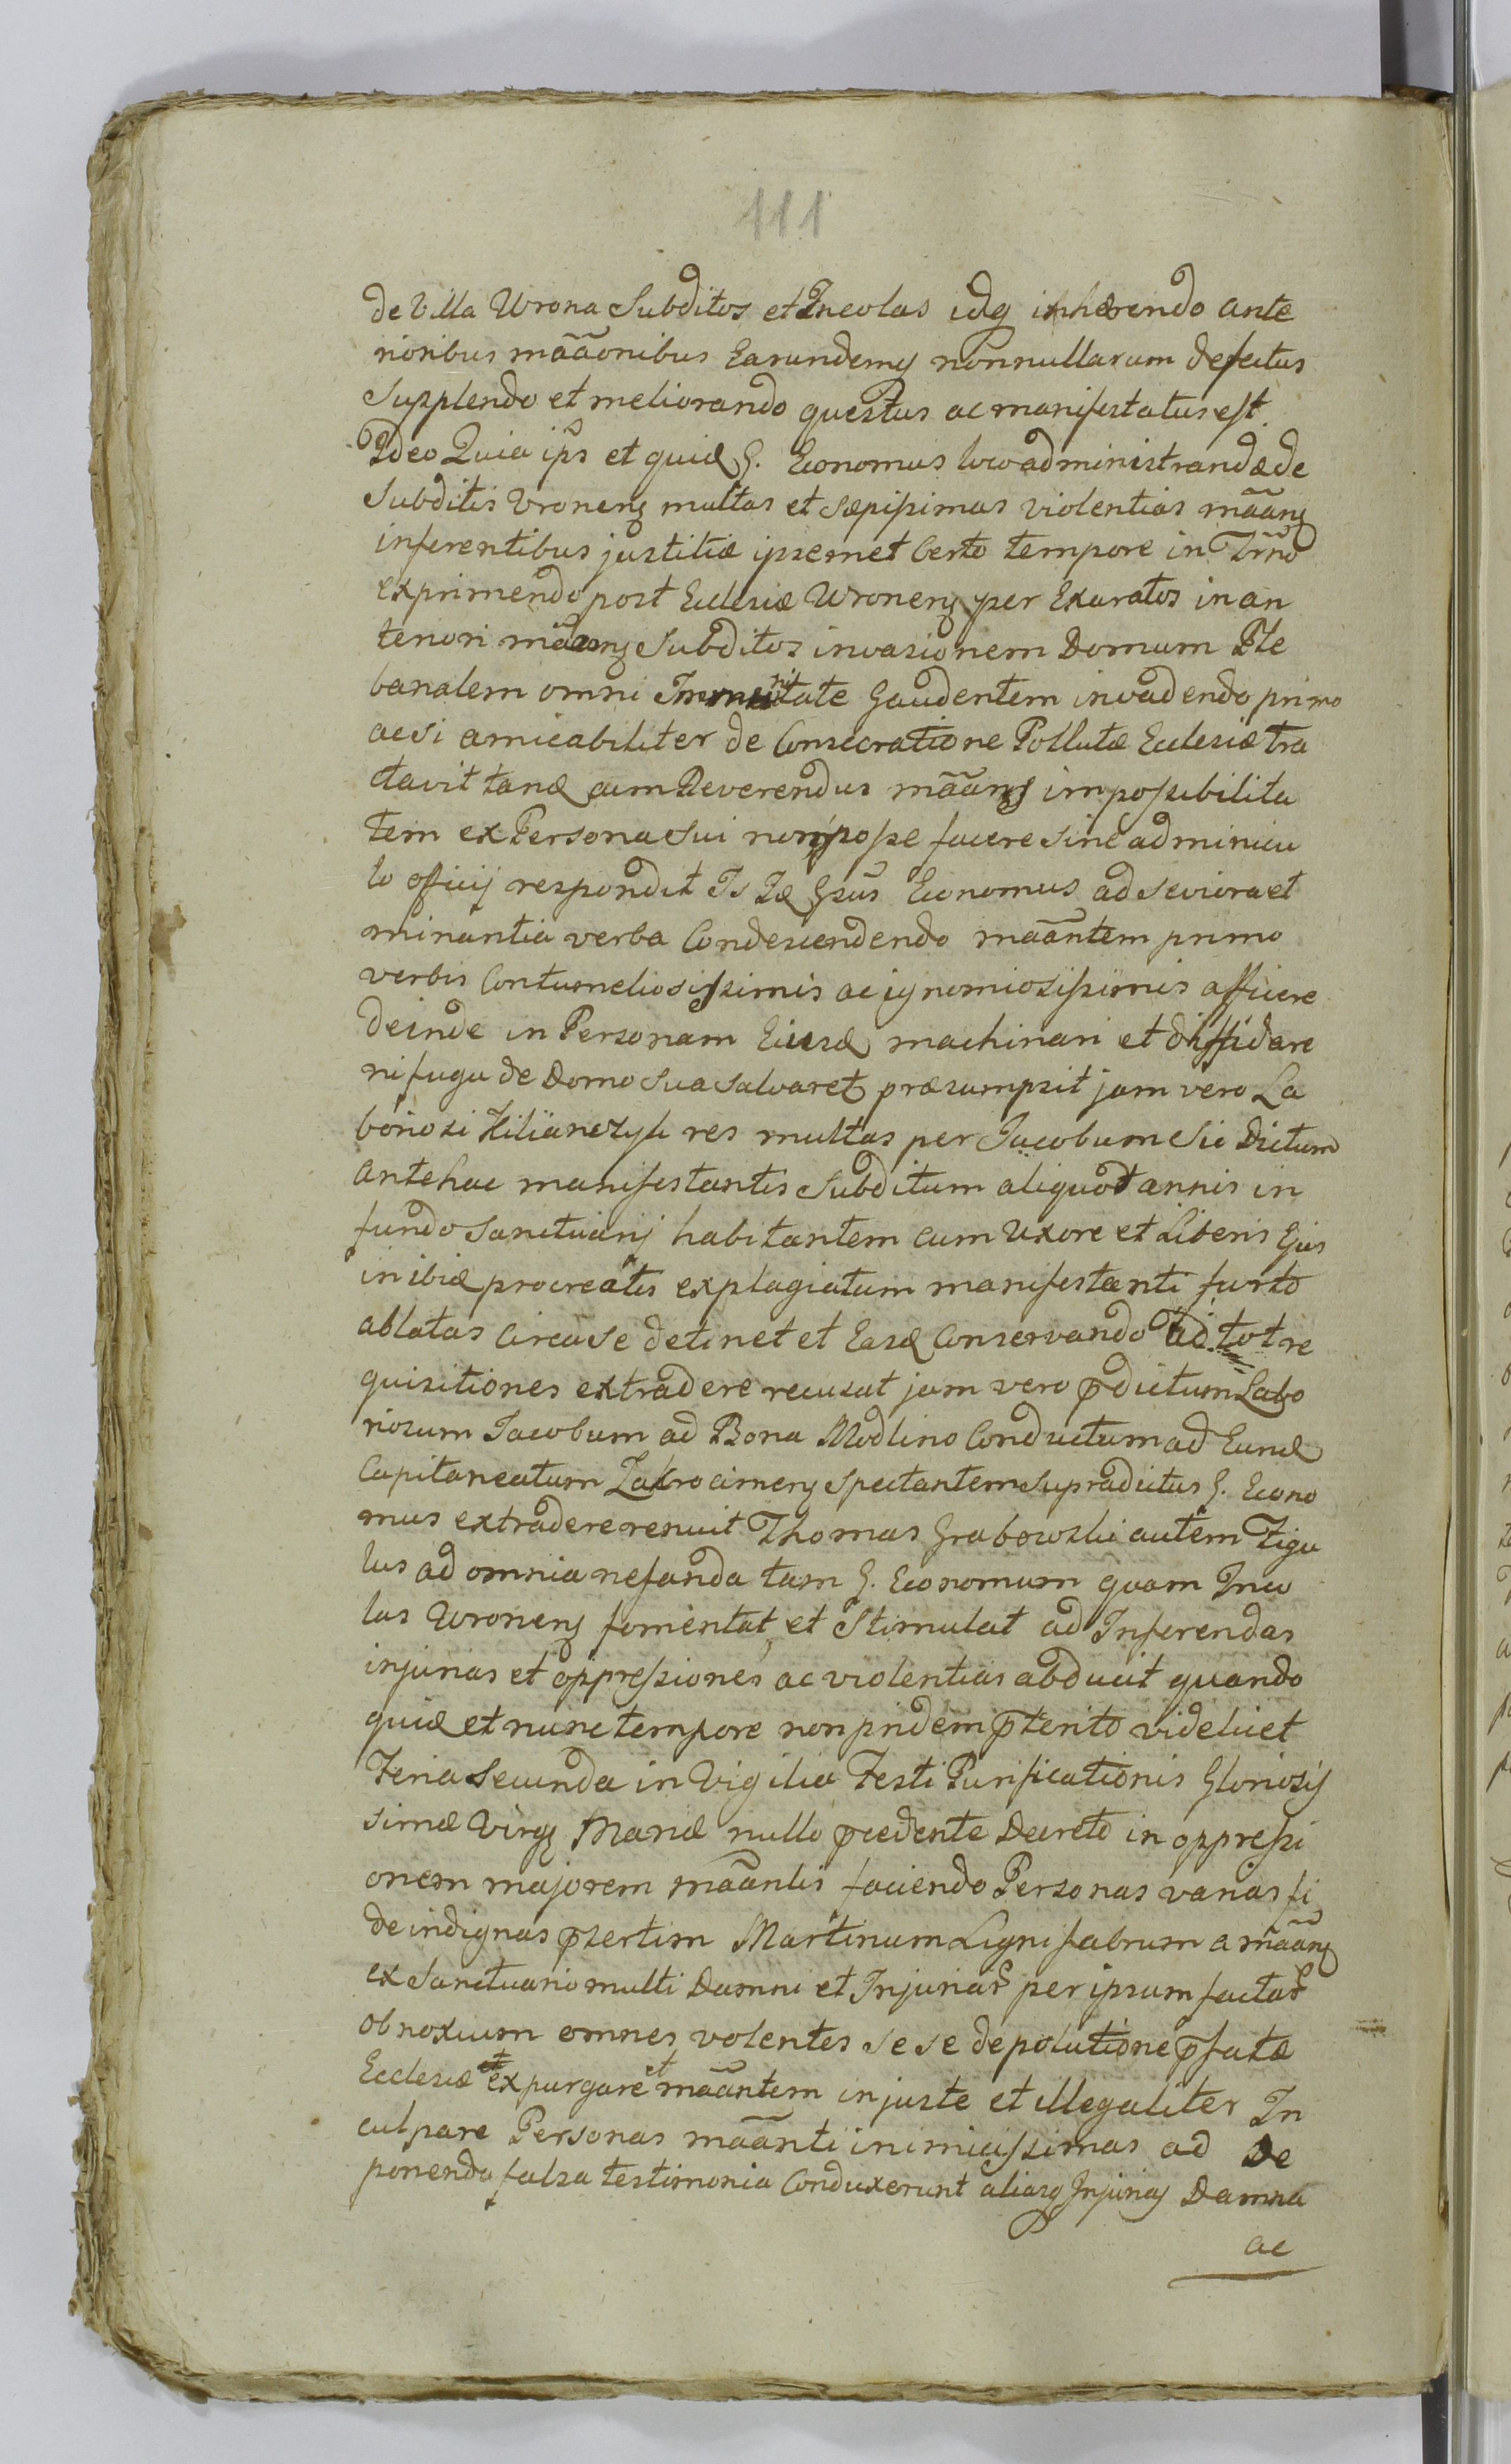 111
de Villa Wrona Subditos et Incolas idq inhærendo ante
rioribus mããonibus Earundemq nonnullarum defectus
Supplendo et meliorando questus ac manifestatus est.
Ideo Quia ips et quid G. Economus loco administrandæ de
Subditis Wronens multas et sæpissimas violentias mããns
inferentibus justitiæ ipsemet Certo tempore in Trno
exprimendo post Ecclesiæ Wronens per Exaratos in an
teriori mããons Subditos invasionem Domum Ple
banalem omni Immunitate Gaudentem invadendo primo
acsi amicabiliter de Consecratione Pollutæ Ecclesiæ tra
ctavit tand cum Reverendus mããns impossibilita
tem ex Persona sui non posse facere sine adminicu
lo officij respondit Is Id Gsus Economus ad seviora et
minantia verba Condescendendo mããntem primo
verbis Contumeliosissimis ac ignomiosissimis afficere
deinde in Personam Eiusd machinari et diffidare
ni fuga de Domo sua salvaret præsumpsit jam vero La
boriosi Kilianczyk res multas per Jacobum sic Dictum
antehac manifestantis Subditum aliquot annis in
fundo Sanctuarij habitantem cum Uxore et Liberis Ejus
in ibid procreatis explagiatum manifestanti furto
ablatas circa se detinet et Easd Conservando Ad tot re
quisitiones extradere recusat jam vero pdictum Labo
riosum Jacobum ad Bona Modlino Conductum ad Eund
Capitaneatum Zakrocimens Spectantem Supradictus G. Econo
mus extradere renuit Thomas Grabowski autem Figu
lus ad omnia nefanda tam G. Economum quam Inco
las Wronens fomentat et Stimulat ad Inferendas
injurias et oppressiones ac violentias abducit quando
quid et nunc tempore non pridem pterito videlicet
Feria Secunda in Vigilia Festi Purificationis Gloriosis
simæ Virgs Mariæ nullo pcedente Decreto in oppressi
onem majorem mããntis faciendo Personas varias fi
de indignas psertim Martinum Lignifabrum a mããns
ex Sanctuario multi Damni et Injuriar per ipsum factar
obnoxium omnes volentes se se de polutione pfatæ
Ecclesiæ et expurgare et mããntem injuste et illegaliter In
culpare Personas mããnti inimicissimas ad De
ponenda falsa testimonia Conduxerunt aliasq Injurias Damna
ac